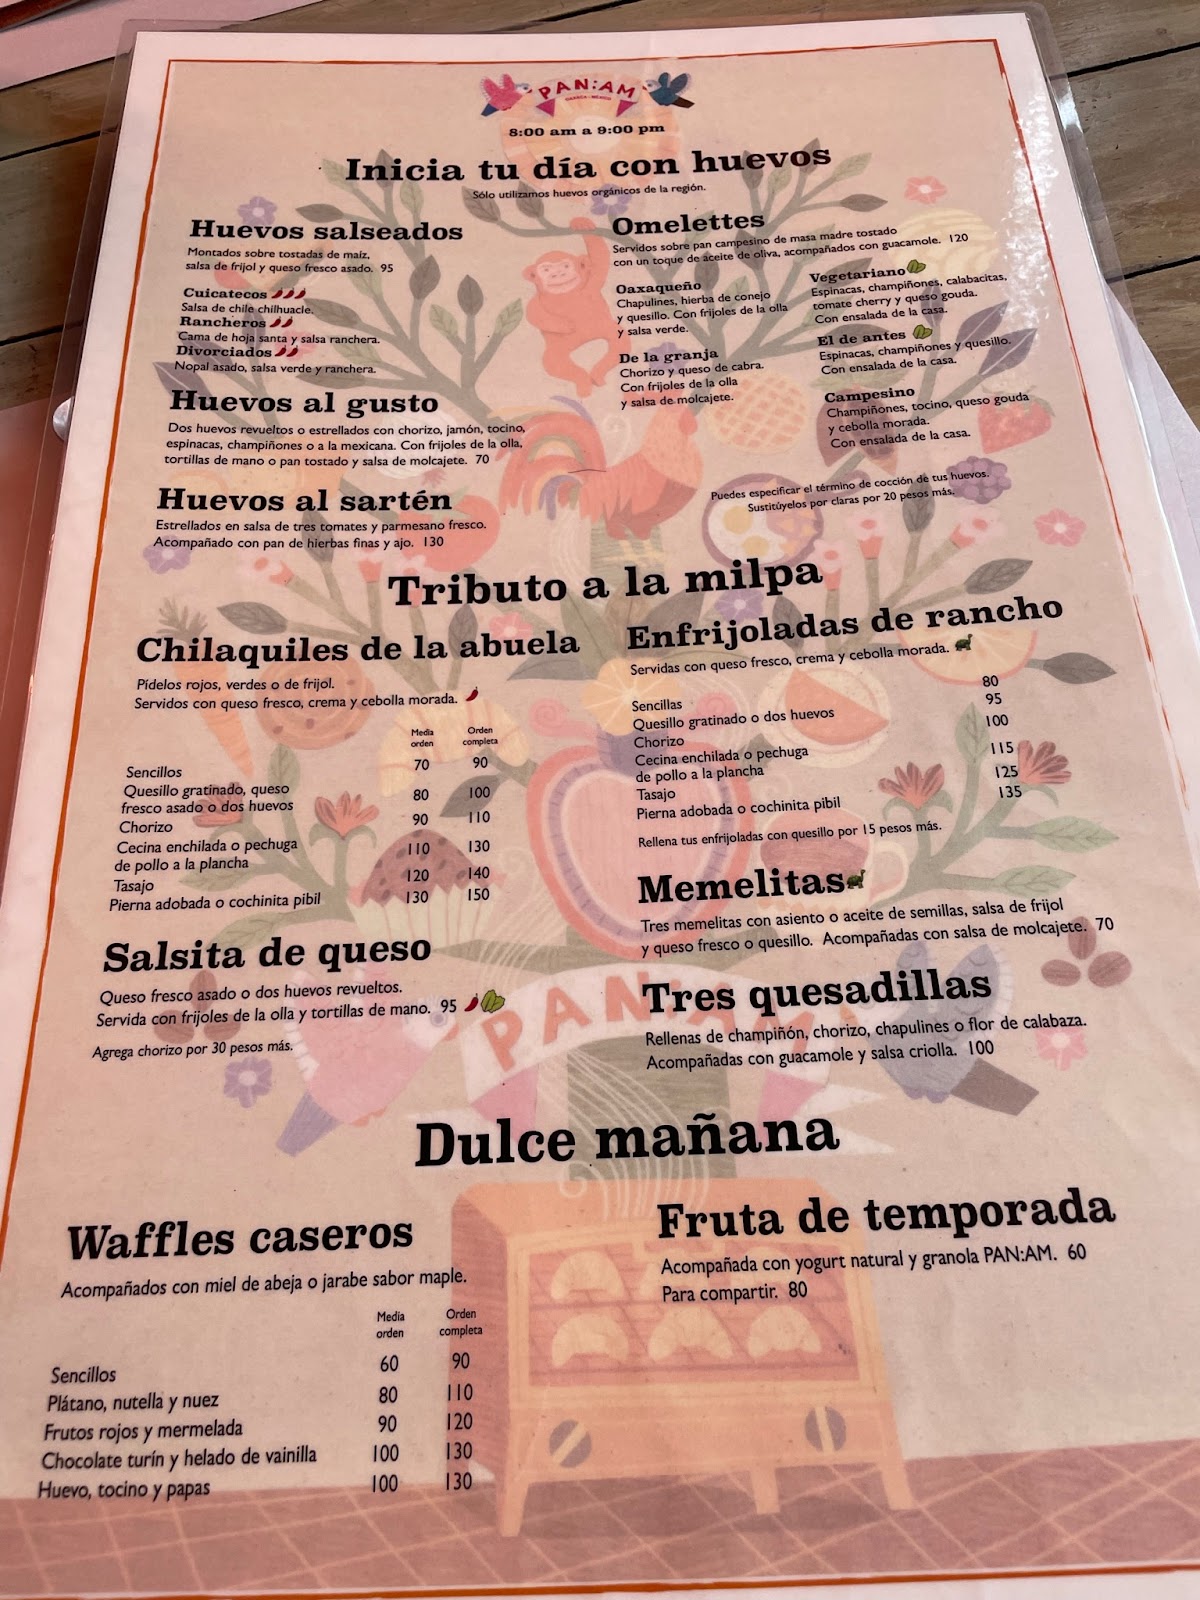 PAN:AM
OAXACA - MÉXICO
8:00 am a 9:00 pm
Inicia tu día con huevos
Sólo utilizamos huevos orgánicos de la región.
Huevos salseados
Montados sobre tostadas de maíz,
salsa de frijol y queso fresco asado. 95
Cuicatecos
Salsa de chile chilhuacle.
Rancheros
Cama de hoja santa y salsa ranchera.
Divorciados
Nopal asado, salsa verde y ranchera.
Huevos al gusto
Dos huevos revueltos o estrellados con chorizo, jamón, tocino,
espinacas, champiñones o a la mexicana. Con frijoles de la olla,
tortillas de mano o pan tostado y salsa de molcajete. 70
Huevos al sartén
Estrellados en salsa de tres tomates y parmesano fresco.
Acompañado con pan de hierbas finas y ajo. 130
Omelettes
Servidos sobre pan campesino de masa madre tostado
con un toque de aceite de oliva, acompañados con guacamole. 120
Oaxaqueño
Chapulines, hierba de conejo
y quesillo. Con frijoles de la olla
y salsa verde.
De la granja
Chorizo y queso de cabra.
Con frijoles de la olla
y salsa de molcajete.
Vegetariano
Espinacas, champiñones, calabacitas,
tomate cherry y queso gouda.
Con ensalada de la casa.
El de antes
Espinacas, champiñones y quesillo.
Con ensalada de la casa.
Campesino
Champiñones, tocino, queso gouda
y cebolla morada.
Con ensalada de la casa.
Puedes especificar el término de cocción de tus huevos.
Sustitúyelos por claras por 20 pesos más.
Tributo a la milpa
Chilaquiles de la abuela
Pídelos rojos, verdes o de frijol.
Servidos con queso fresco, crema y cebolla morada.
Media orden Orden completa
Sencillos 70 90
Quesillo gratinado, queso
fresco asado o dos huevos 80 100
Chorizo 90 110
Cecina enchilada o pechuga
de pollo a la plancha 110 130
Tasajo 120 140
Pierna adobada o cochinita pibil 130 150
Salsita de queso
Queso fresco asado o dos huevos revueltos.
Servida con frijoles de la olla y tortillas de mano. 95
Agrega chorizo por 30 pesos más.
Enfrijoladas de rancho
Servidas con queso fresco, crema y cebolla morada.
Sencillas 80
Quesillo gratinado o dos huevos 95
Chorizo 100
Cecina enchilada o pechuga
de pollo a la plancha 115
Tasajo 125
Pierna adobada o cochinita pibil 135
Rellena tus enfrijoladas con quesillo por 15 pesos más.
Memelitas
Tres memelitas con asiento o aceite de semillas, salsa de frijol
y queso fresco o quesillo. Acompañadas con salsa de molcajete. 70
Tres quesadillas
Rellenas de champiñón, chorizo, chapulines o flor de calabaza.
Acompañadas con guacamole y salsa criolla. 100
Dulce mañana
Waffles caseros
Acompañados con miel de abeja o jarabe sabor maple.
Media orden Orden completa
Sencillos 60 90
Plátano, nutella y nuez 80 110
Frutos rojos y mermelada 90 120
Chocolate turín y helado de vainilla 100 130
Huevo, tocino y papas 100 130
Fruta de temporada
Acompañada con yogurt natural y granola PAN:AM. 60
Para compartir. 80